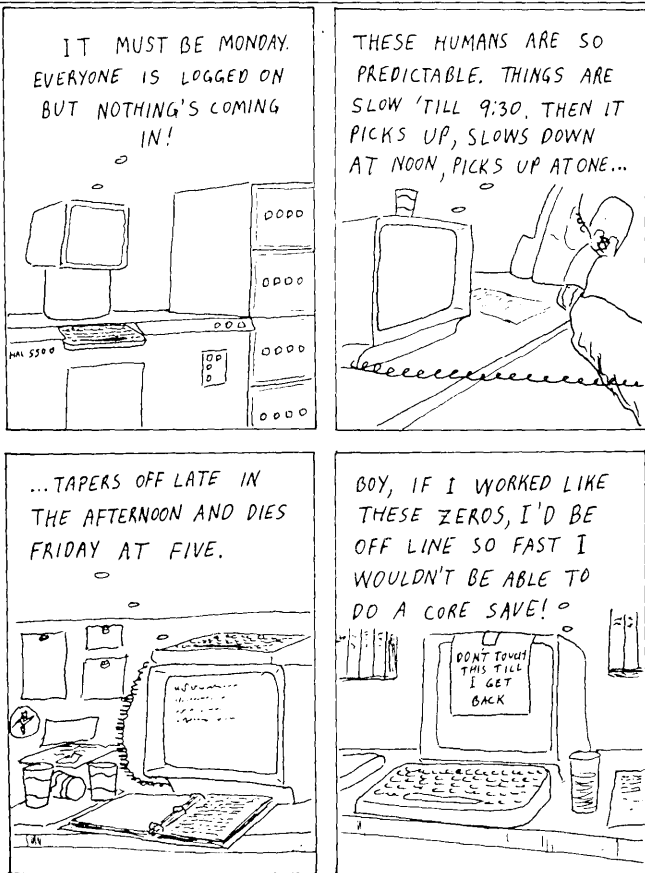 IT MUST BE MONDAY.
EVERYONE IS LOGGED ON
BUT NOTHING'S COMING
IN!
HAL 5500
THESE HUMANS ARE SO
PREDICTABLE. THINGS ARE
SLOW 'TILL 9:30. THEN IT
PICKS UP, SLOWS DOWN
AT NOON, PICKS UP AT ONE...
...TAPERS OFF LATE IN
THE AFTERNOON AND DIES
FRIDAY AT FIVE.
BOY, IF I WORKED LIKE
THESE ZEROS, I'D BE
OFF LINE SO FAST I
WOULDN'T BE ABLE TO
DO A CORE SAVE!
DON'T TOUCH
THIS TILL
I GET
BACK